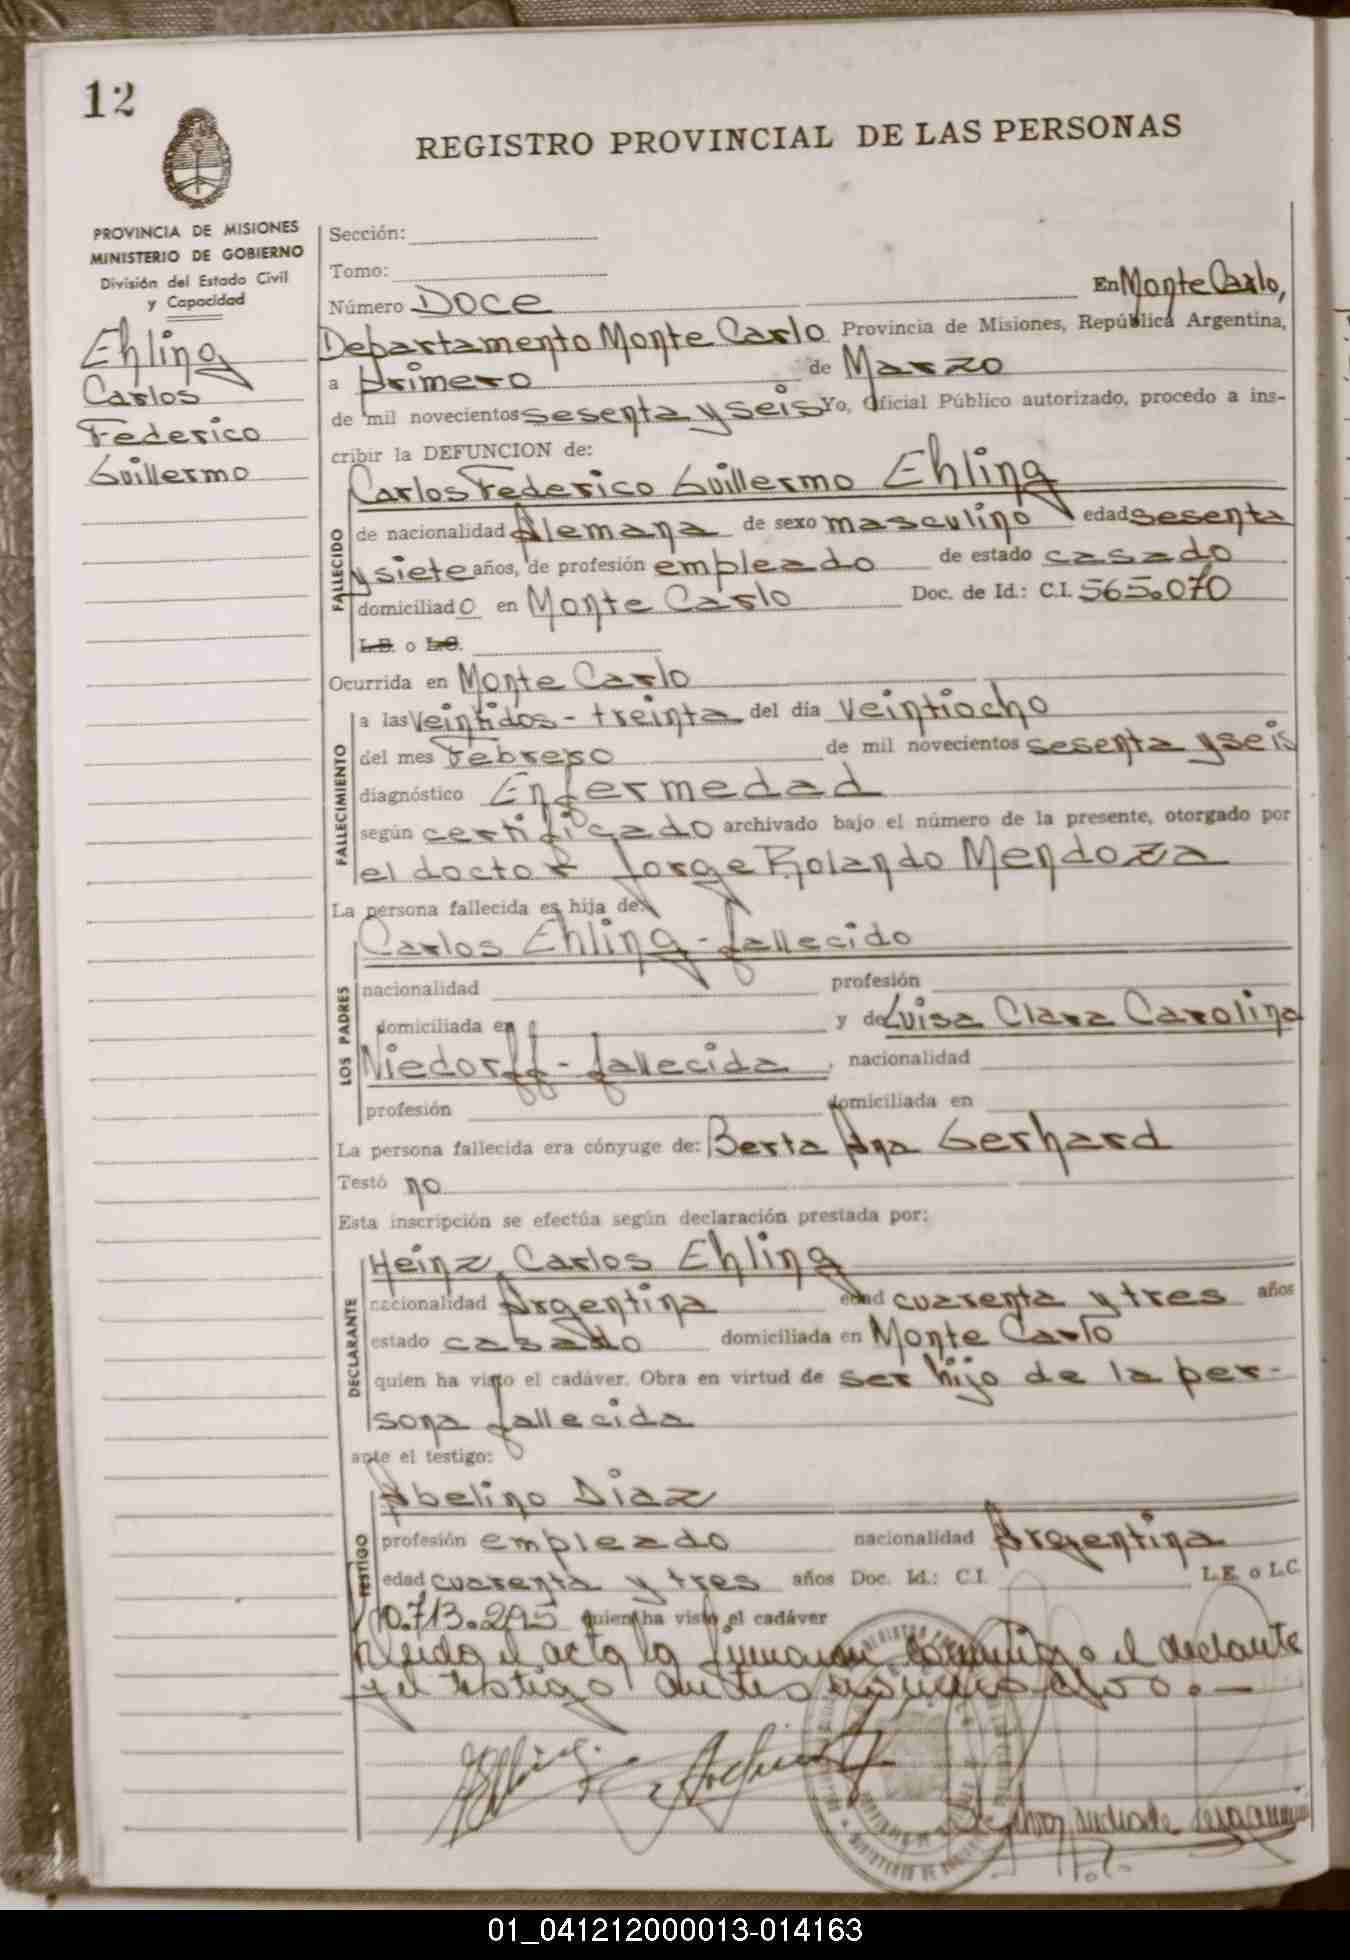 12
REGISTRO PROVINCIAL DE LAS PERSONAS
PROVINCIA DE MISIONES
MINISTERIO DE GOBIERNO
División del Estado Civil
y Capacidad
Ehling
Carlos
Federico
Guillermo
Sección:
Tomo:
Número Doce En Monte Carlo,
Departamento Monte Carlo Provincia de Misiones, República Argentina,
a primero de Marzo
de mil novecientos sesenta y seis Yo, Oficial Público autorizado, procedo a ins-
cribir la DEFUNCION de:
Carlos Federico Guillermo Ehling
FALLECIDO
de nacionalidad Alemana de sexo masculino edad sesenta
y siete años, de profesión empleado de estado casado
domiciliado en Monte Carlo Doc. de Id.: C.I. 565.070
L.E. o L.C.
Ocurrida en Monte Carlo
FALLECIMIENTO
a las Veintidos - treinta del día veintiocho
del mes Febrero de mil novecientos sesenta y seis
diagnóstico Enfermedad
según certificado archivado bajo el número de la presente, otorgado por
el doctor Jorge Rolando Mendoza
La persona fallecida es hija de:
LOS PADRES
Carlos Ehling - fallecido
nacionalidad profesión
domiciliada en y de Luisa Clara Carolina
Niedorff - fallecida, nacionalidad
profesión domiciliada en
La persona fallecida era cónyuge de: Berta Ana Gerhard
Testó no
Esta inscripción se efectúa según declaración prestada por:
DECLARANTE
Heinz Carlos Ehling
nacionalidad Argentina edad cuarenta y tres años
estado casado domiciliada en Monte Carlo
quien ha visto el cadáver. Obra en virtud de ser hijo de la per-
sona fallecida
ante el testigo:
TESTIGO
Abelino Diaz
profesión empleado nacionalidad Argentina
edad cuarenta y tres años Doc. Id.: C.I. L.E. o L.C.
10.713.295 quien ha visto el cadáver
el acta la firmaron conmigo el declante
y el testigo antes
01_041212000013-014163